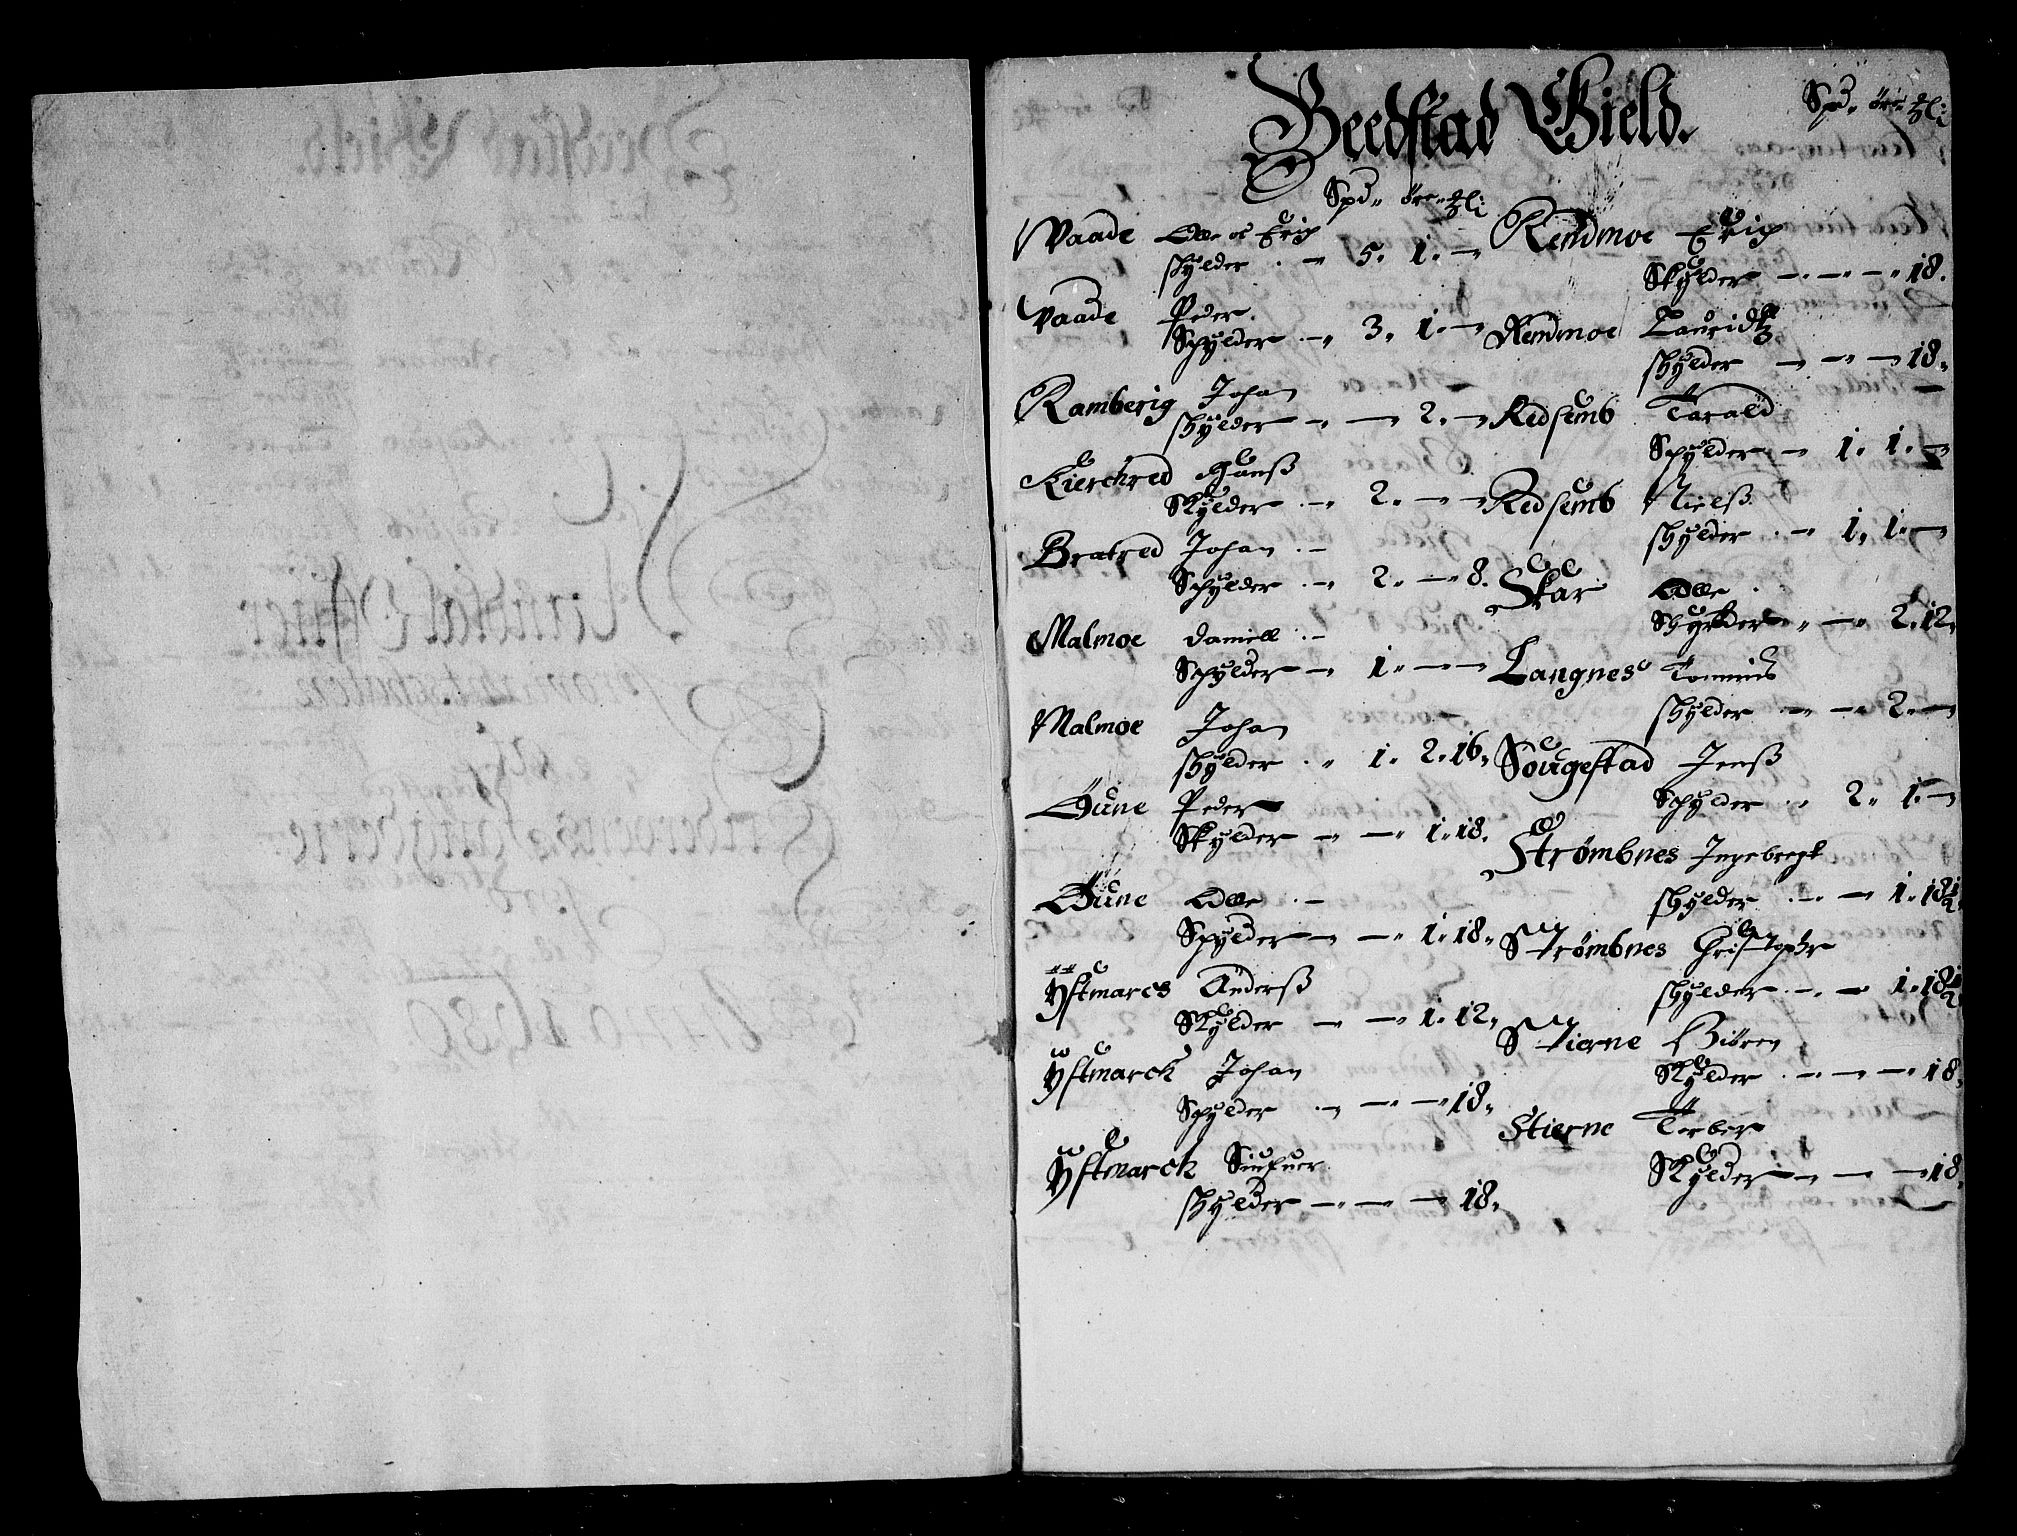 Beedstad Gield.
Spd. öre
Spd. öre
Vaade Olle oc Erich
skylder 5. 1.
Vaade Peder.
Schylder 3. 1.
Ramberig Johan
skylder 2.
Kierckred Hanß
Skylder 2.
Bratred Johan
Schylder 2. 8.
Malmoe Daniell
Schylder 1.
Malmoe Johan
skylder 1. 2. 16.
Öune Peder
Skylder 1. 18.
Öune Olle
Schylder 1. 18.
Ÿftmarck Anderß
Skylder 1. 12.
Ÿftmarck Johan
Schylder 18.
Ÿftmarck
skylder 18.
Rendmoe Erich
Skylder 18.
Rendmoe Lauridtz
skylder 18.
Redsemb Tarald
Schylder 1. 1.
Redsemb Nielß
skylder 1. 1.
Skar Olle
Skylder 2. 12.
Langnes Tommis
skylder 2.
Sougestad Jenß
Schylder 2. 1.
Strømbnes Ingebregt
skylder 1. 18½
Strømbnes Christopher
skylder 1. 18½
Stierne Biören
Skylder 18.
Stierne Torber
Skylder 18.